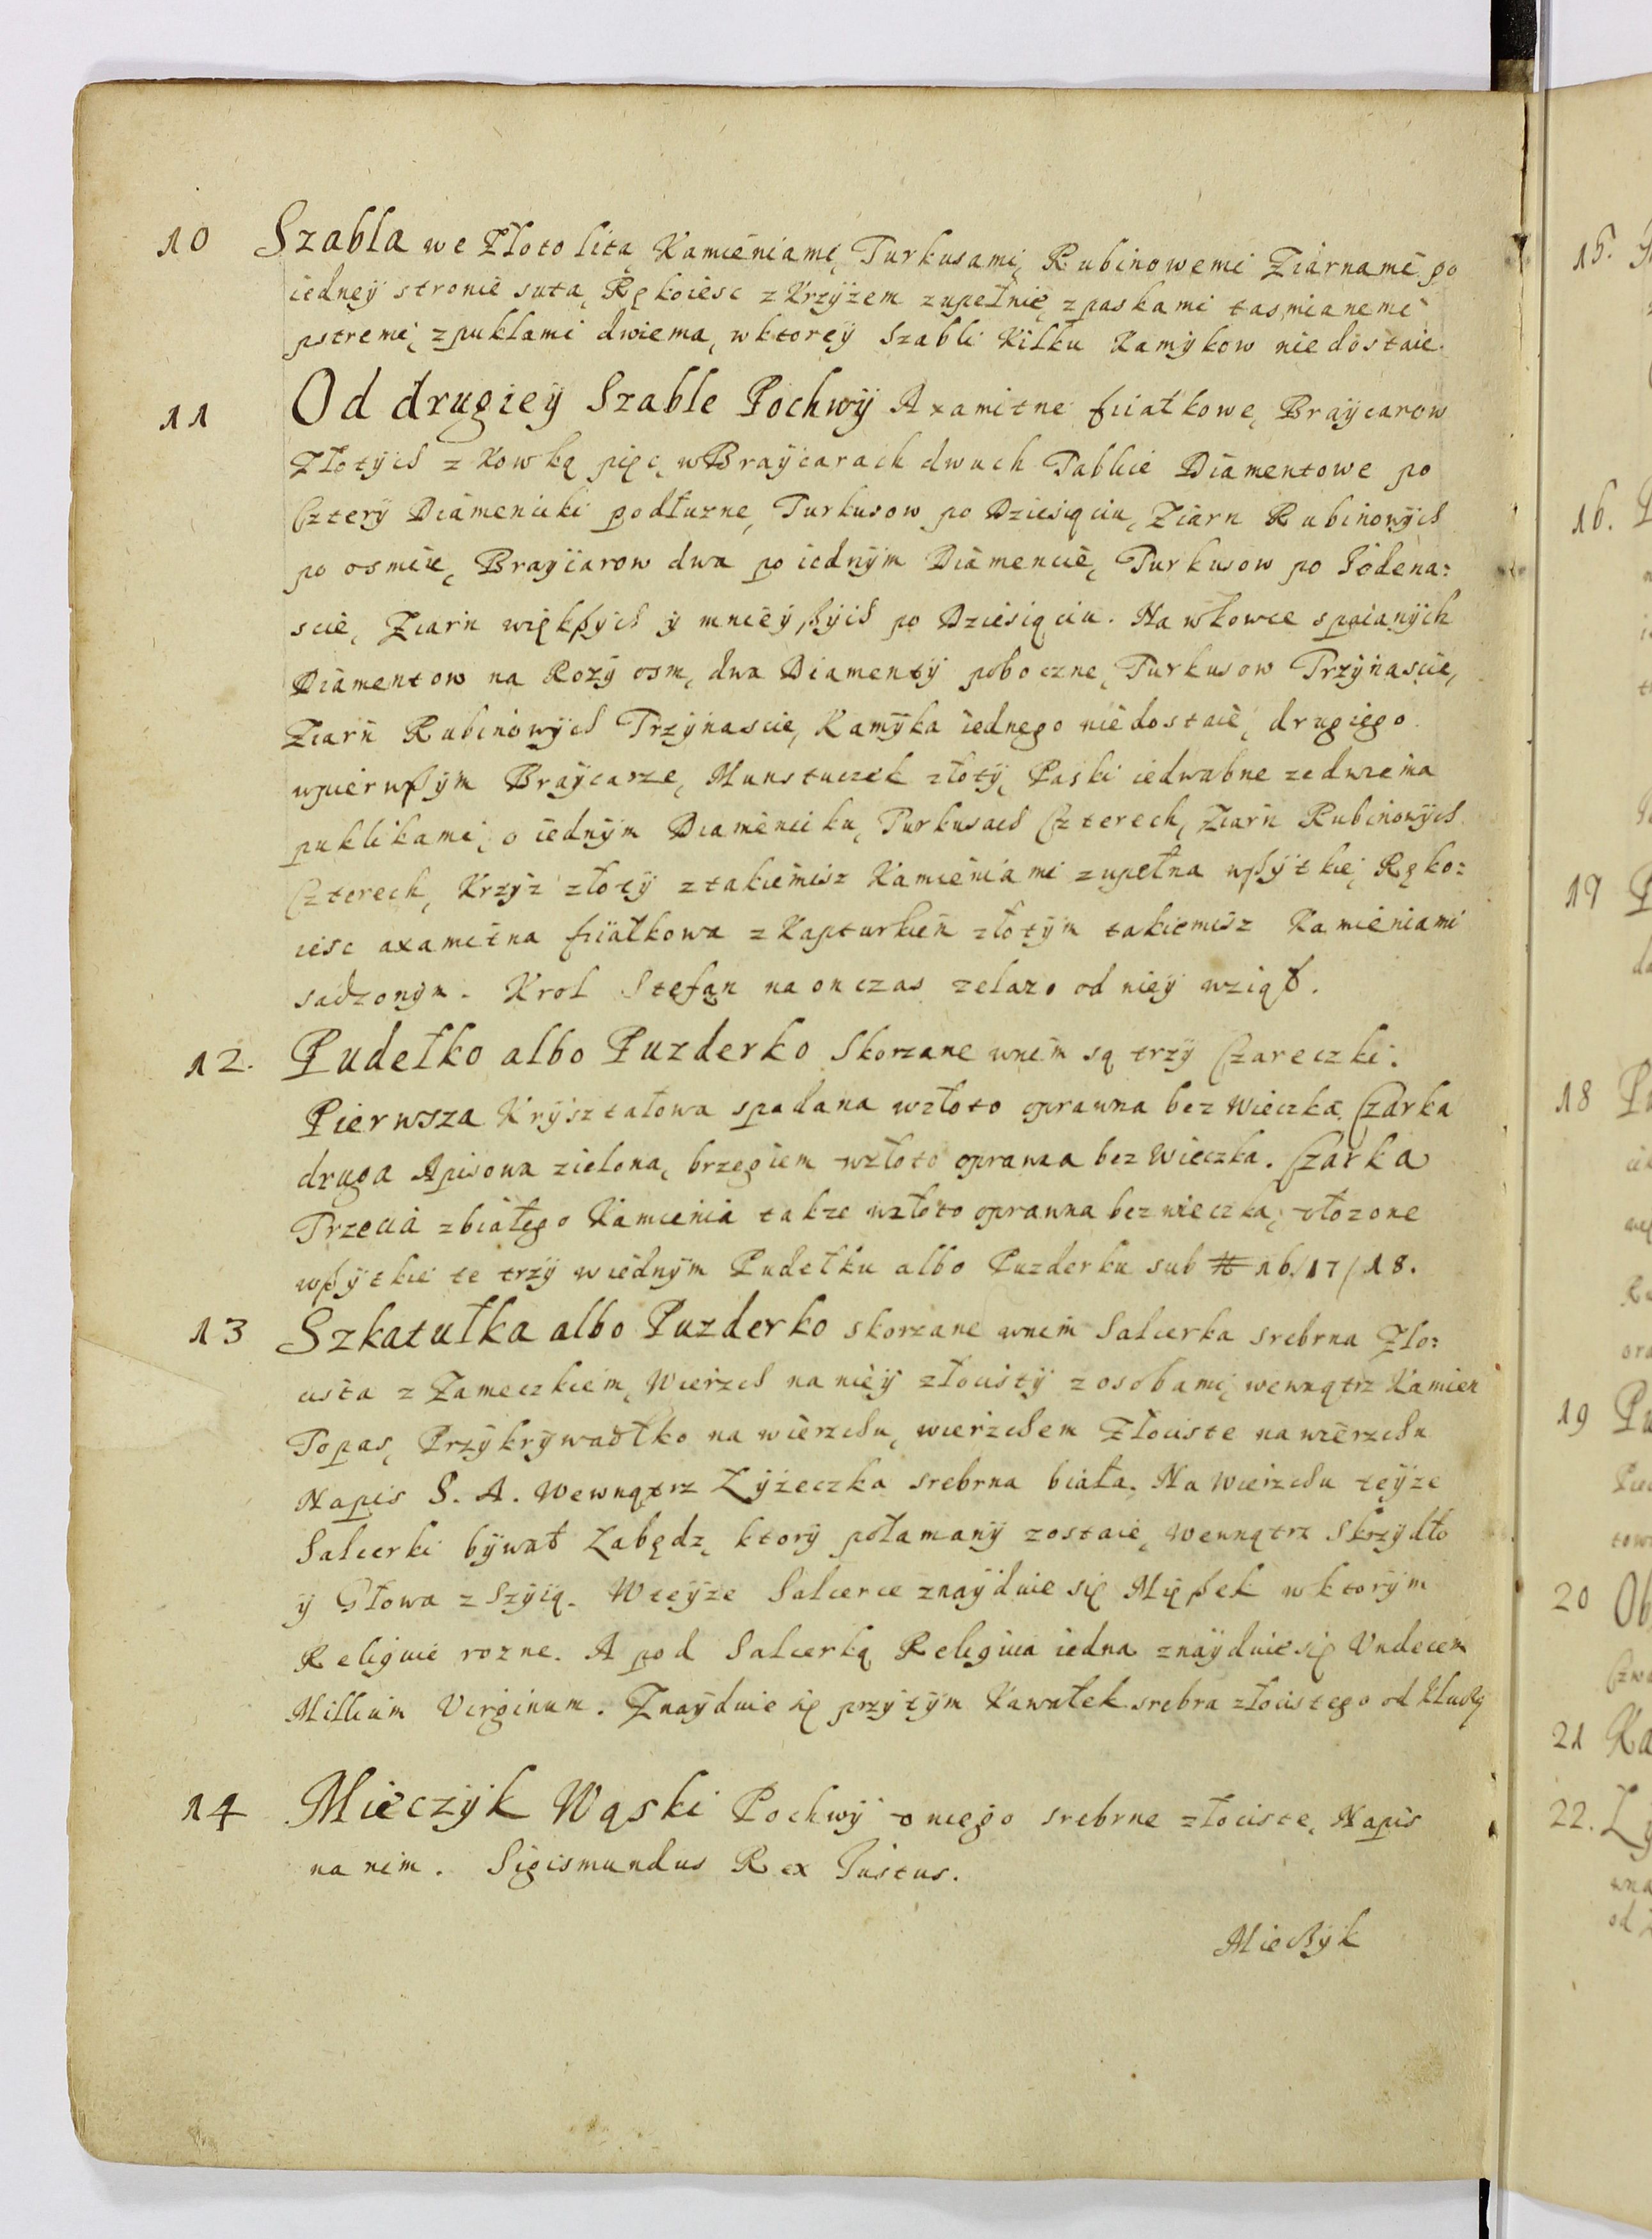 10 Szabla we Złoto lita, Kamieniami, Turkusami, Rubinowemi Ziarnami po
iedney stronie suta, Rękoiesc z Krzyżem zupełnie, z paskami tasmianemi
pstremi, z puklami dwiema, w ktorey Szabli Kilku Kamykow niedostaie.
11 Od drugiey Szable Pochwy Axamitne fiiałkowe, Braycarow
Złotych z Kowką pięc, w Braycarach dwuch Tablice Diamentowe po
Cztery Diamenciki podłuzne, Turkusow po Dziesiąciu, Ziarn Rubinowych
po osmiu, Braycarow dwa po iednym Diamencie, Turkusow po Iedena:
scie, Ziarn większych y mnieyszych po Dziesiąciu. Na wkowce spaianych
Diamentow na Rozy osm, dwa Diamenty poboczne, Turkusow Trzynascie,
Ziarn Rubinowych Trzynascie, Kamyka iednego niedostaie, drugiego
wpierwszym Braycarze, Munsztuczek złoty, Paski iedwabne ze dwiema
puklikami, o iednym Diamenciku, Turkusach Czterech, Ziarn Rubinowych
Czterech, Krzyz złoty z takiemisz Kamieniami zupełna wszytkie, Ręko:
iesc axamitna fiiałkowa z Kapturkiem złotym takiemisz Kamieniami
sadzonym. Krol Stefan na on czas zelazo od niey wziął.
12. Pudełko albo Puzderko Skorzane wnim są trzy Czareczki.
Pierwsza Kryształowa spadana wzłoto oprawna bez wieczka. Czarka
druga Apisowa zielona, brzegiem wzłoto oprawna bez Wieczka. Czarka
Trzecia z białego Kamienia takze wzłoto oprawna bez wieczka, włozone
wszytkie te trzy wiednym Pudełku albo Puzderku sub # 16/17/18.
13 Szkatułka albo Puzderko skorzane wnim Salcerka srebrna Zło:
cista z Zameczkiem, Wierzch na niey złocisty z osobami, wewnątrz Kamien
Topas, Przykrywadłko na wierzchu, wierzchem Złociste na wierzchu
Napis S. A. Wewnątrz Łyżeczka srebrna biała. Na wierzchu teyze
Salcerki bywał Łabędz, ktory połamany zostaie, wewnątrz Skrzydło
y Głowa z Szyią. Wteyze Salcerce znayduie się Mięszek w ktorym
Religuie rozne. A pod Salcerką Religuia iedna znayduie się Vndecem
Millium Virginum. Znayduie się przytym Kawałek srebra złocistego od
14 Mieczyk Wąski Pochwy u niego srebrne złociste, Napis
na nim. Sigismundus Rex Iustus.
Mieczyk
15.
16.
17
18
19
20 Ob
21 Ka
22.